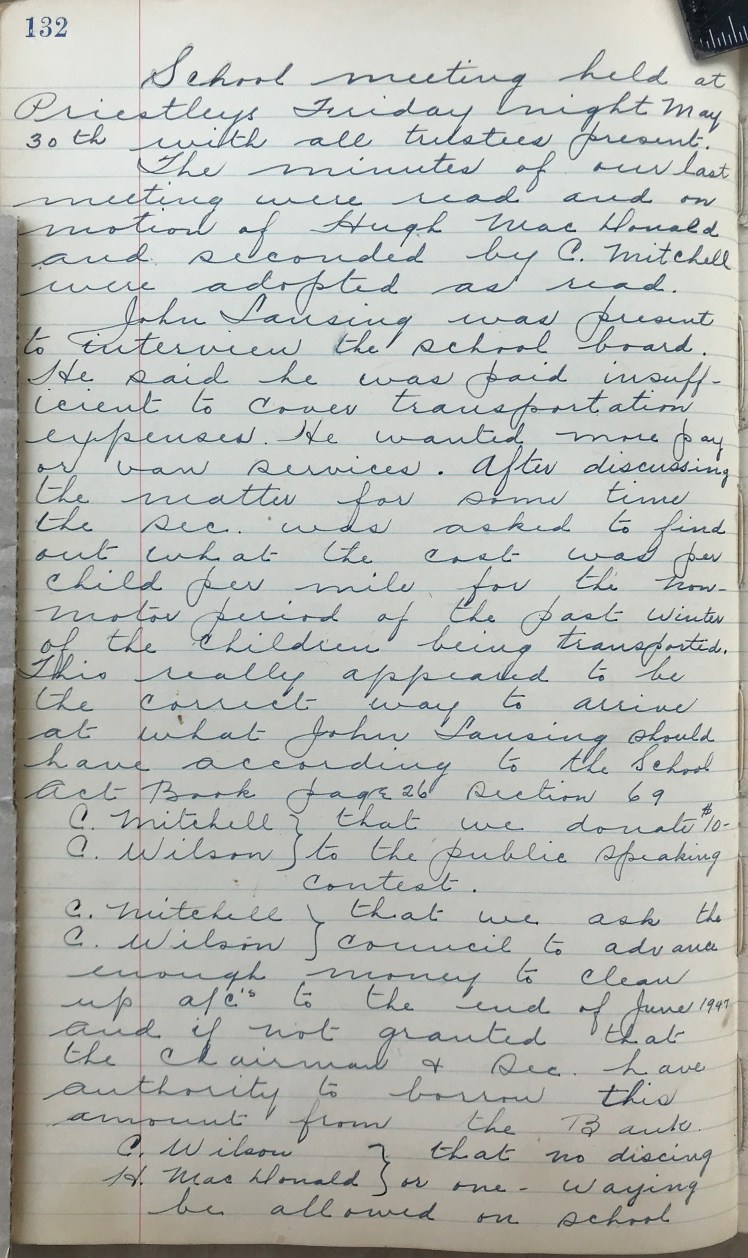 132
School meeting held at
Priestleys Friday night May
30th with all trustees present.
The minutes of our last
meeting were read and on
motion of Hugh MacDonald
and seconded by C. Mitchell
were adopted as read.
John Lansing was present
to interview the school board.
He said he was paid insuff-
icient to cover transportation
expenses. He wanted more pay
or van services. After discussing
the matter for some time
the sec. was asked to find
out what the cost was per
child per mile for the non-
motor period of the past winter
of the children being transported.
This really appeared to be
the correct way to arrive
at what John Lansing should
have according to the School
Act Book page 26 section 69
C. Mitchell } that we donate $10-
C. Wilson } to the public speaking
contest.
C. Mitchell } that we ask the
C. Wilson } council to advance
enough money to clean
up a/c's to the end of June 1947
and if not granted that
the chairman & sec. have
authority to borrow this
amount from the Bank.
C. Wilson } that no discing
H. MacDonald } or one-waying
be allowed on school